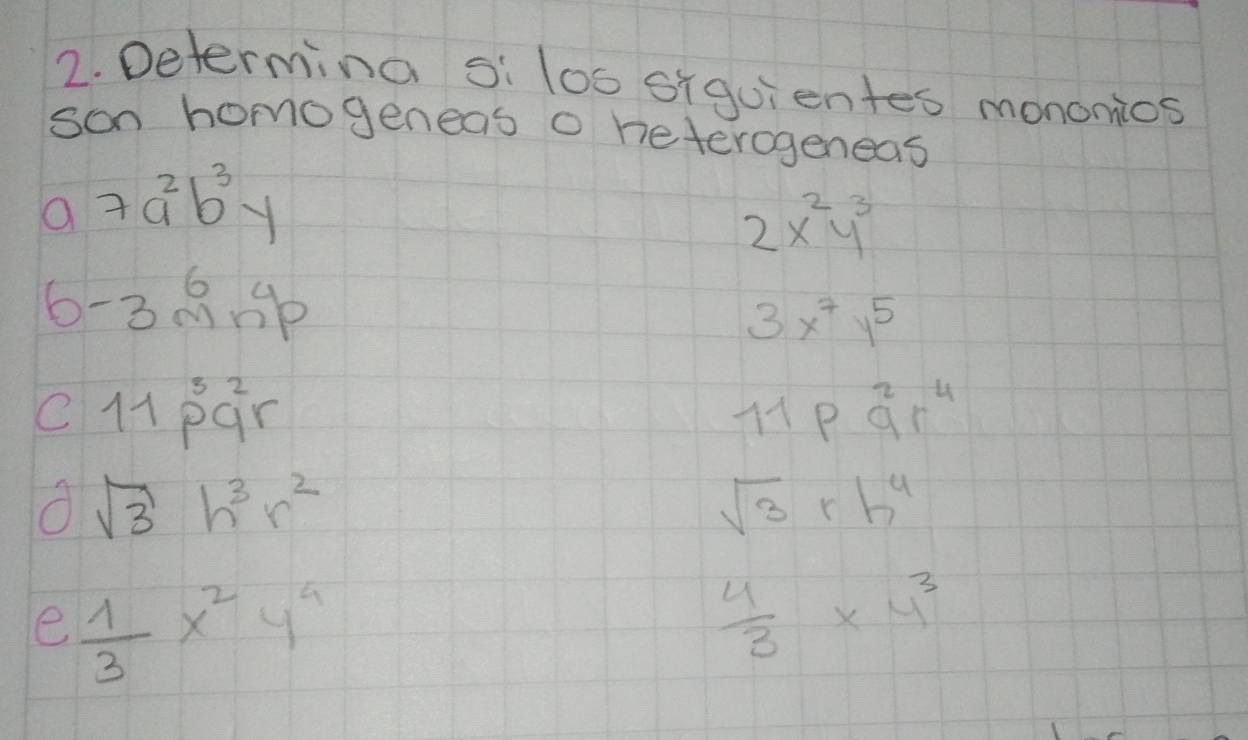 2. Determina si los siguientes monomios
son homogeneas o heterogeneas
a 7a²b³y 2x²y³
b -3m⁶n⁴p 3x⁷y⁵
c 11p³q²r 11pq²r⁴
d √3 h³r² √3 rh⁴
e 1/3 x²y⁴ 4/3 xy³